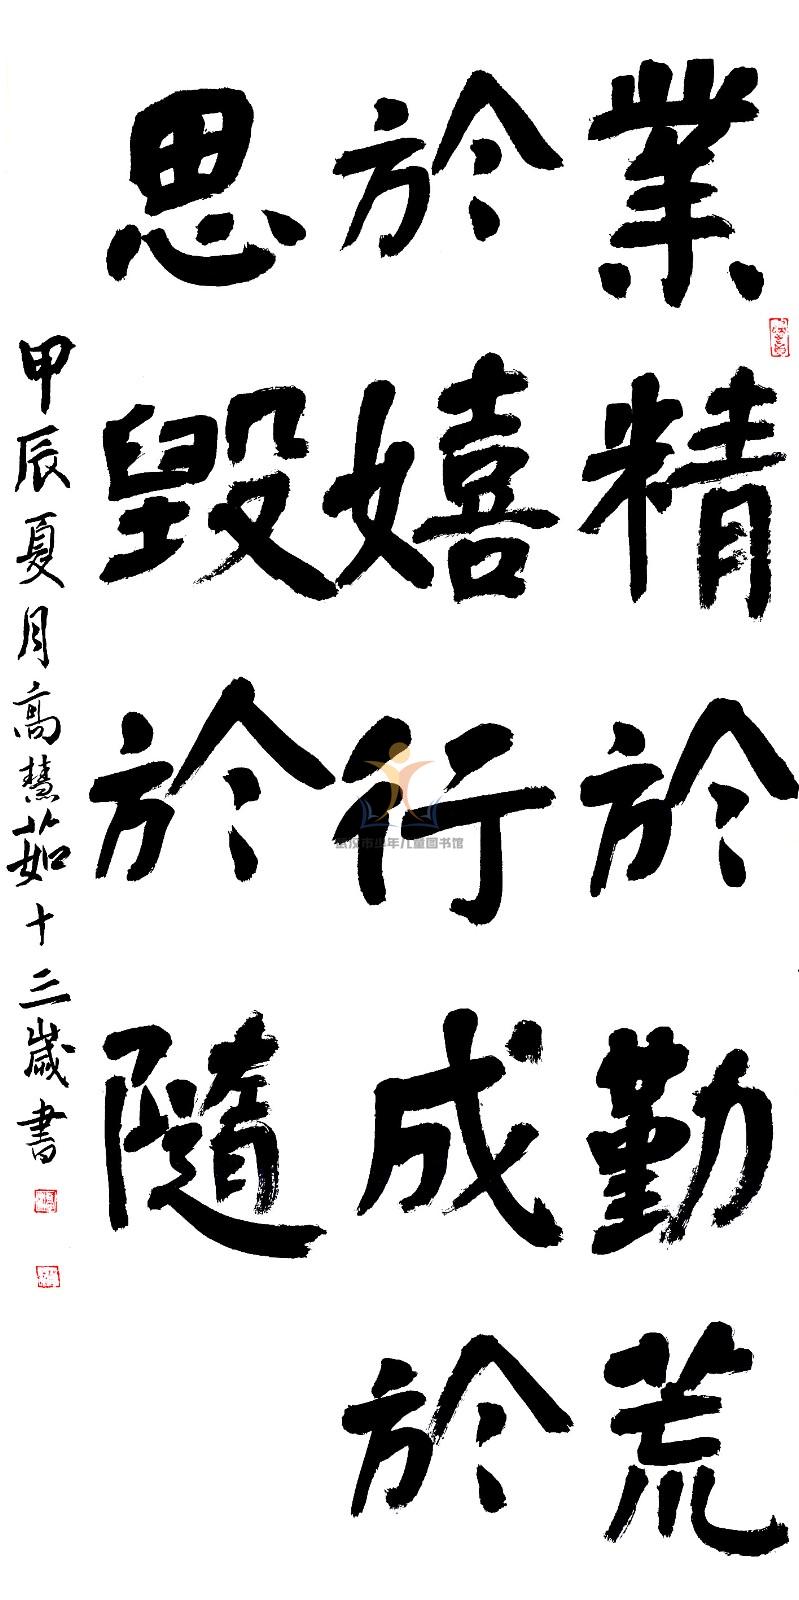 業精於勤荒
於嬉行成於
思毀於隨
甲辰夏月高慧茹十三歲書
武汉市少年儿童图书馆